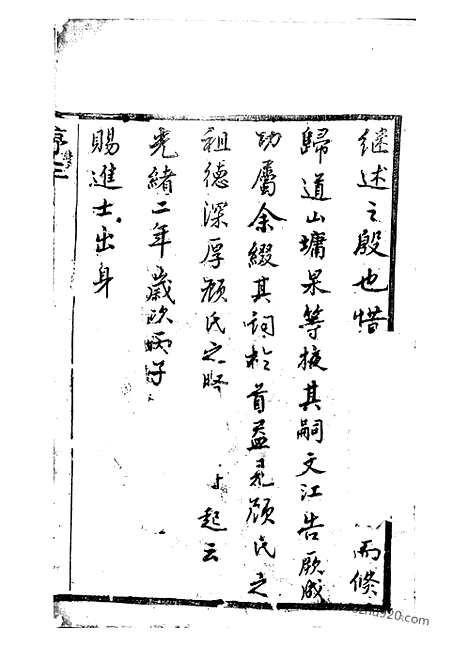 繼述之殷也惜
而倏
歸道山墉杲等掖其嗣文江告厥成
功屬余綴其詞於首益見顏氏之
祖德深厚顏氏之
起云
光緒二年歲次丙子
賜進士出身
序
szhd920.com